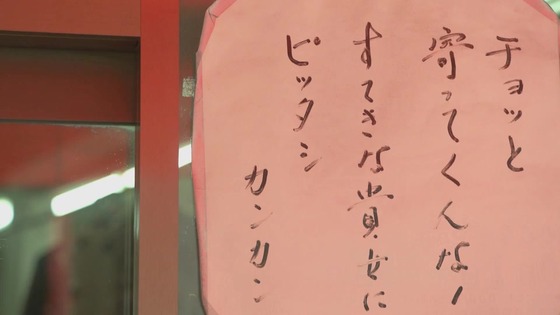 チョッと
寄ってくんな!
すてきな貴女に
ピッタシ
カンカン